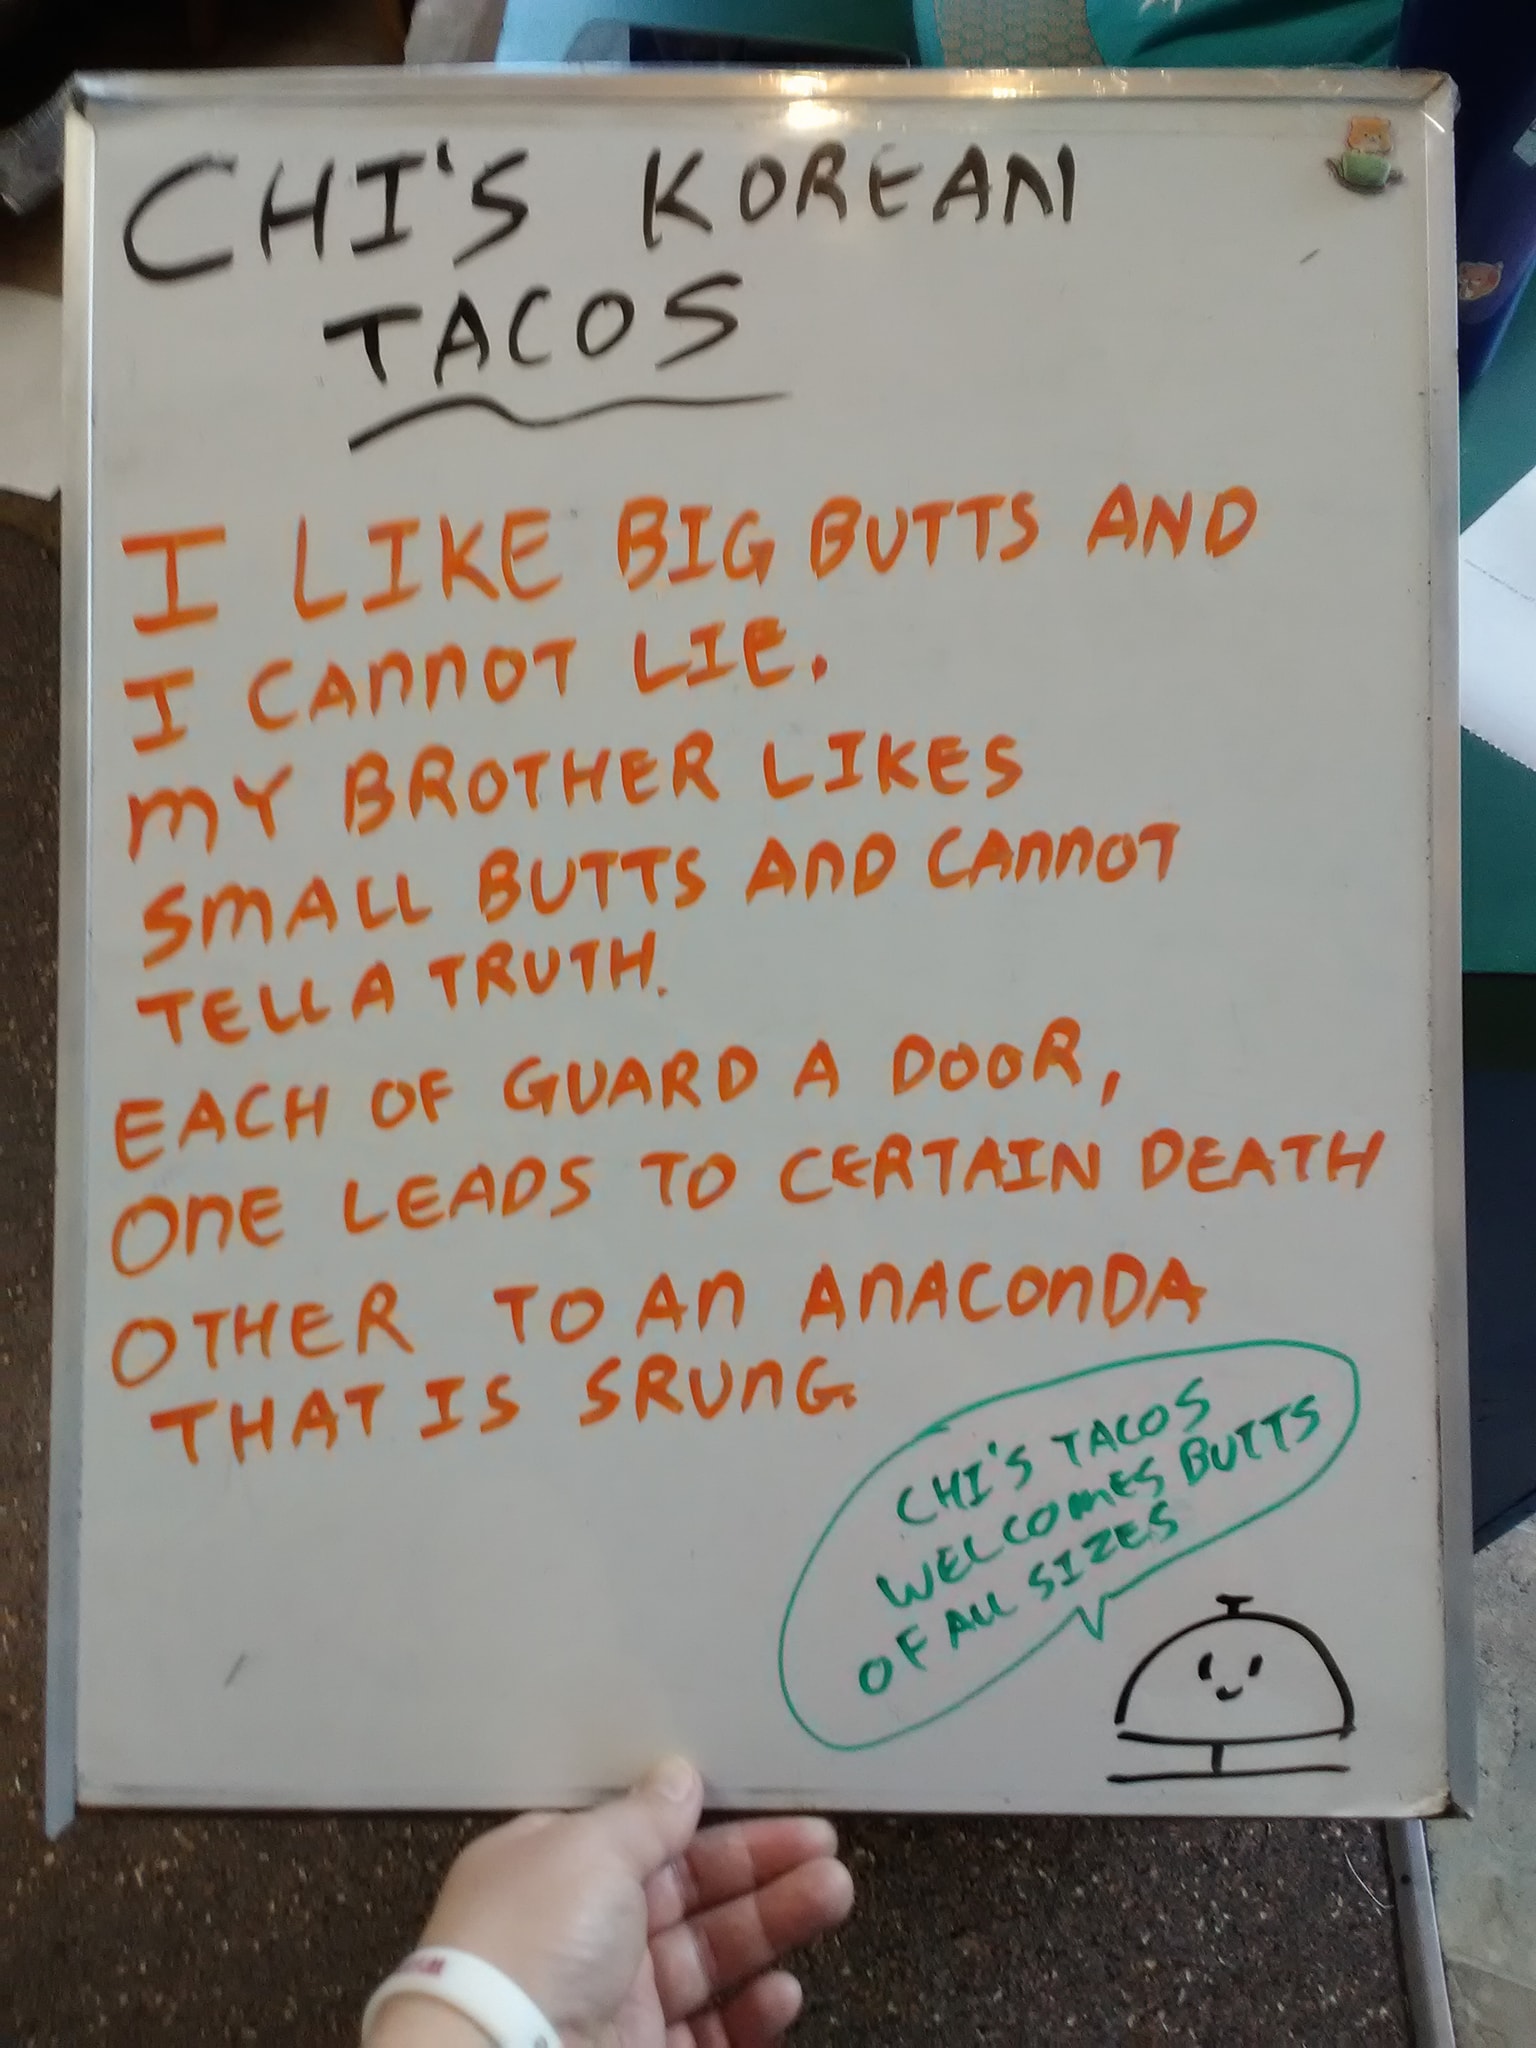 CHI'S KOREAN
TACOS
I LIKE BIG BUTTS AND
I CANNOT LIE.
MY BROTHER LIKES
SMALL BUTTS AND CANNOT
TELL A TRUTH.
EACH OF GUARD A DOOR,
ONE LEADS TO CERTAIN DEATH
OTHER TO AN ANACONDA
THAT IS SRUNG.
CHI'S TACOS
WELCOMES BUTTS
OF ALL SIZES